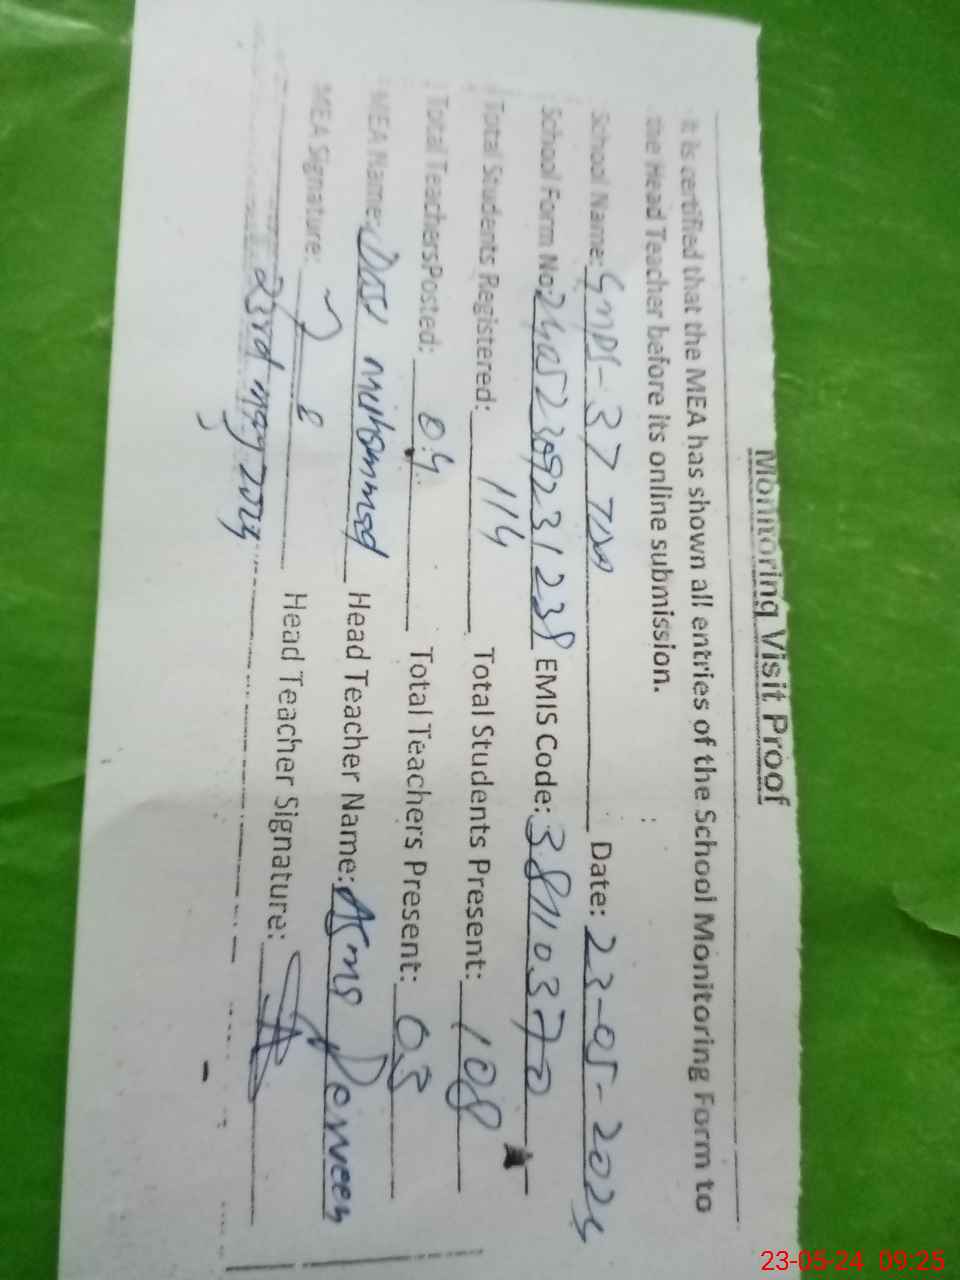 Monitoring Visit Proof
It is certified that the MEA has shown all entries of the School Monitoring Form to
the Head Teacher before its online submission.
School Name: GMPS-37 TDA Date: 23-05-2024
School Form No: EMIS Code: 38110370
Total Students Registered: 114 Total Students Present: 108
Total Teachers Posted: 04 Total Teachers Present: 03
MEA Name: Muhammad Head Teacher Name: Asma Perveen
MEA Signature: Head Teacher Signature:
23rd may 2024
23-05-24 09:25